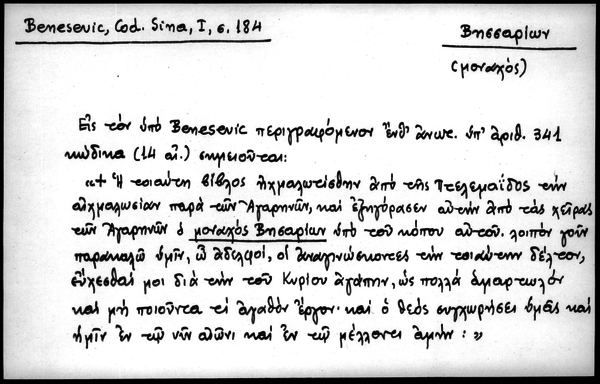 Benesevic, Cod. Sina, I, σ. 184
Βησσαρίων
(μοναχὸς)
Εἰς τὸν ὑπὸ Benesevic περιγραφόμενον ἔνθ' ἀνωτ. ὑπ' ἀριθ. 341
κώδικα (14 αἰ.) σημειοῦται:
«+ Ἡ τοιαύτη βίβλος ἠχμαλωτίσθην ἀπὸ τῆς Πτελεμαΐδος τὴν
αἰχμαλωσίαν παρὰ τῶν Ἀγαρηνῶν, καὶ ἐξηγόρασεν αὐτὴν ἀπὸ τὰς χεῖρας
τῶν Ἀγαρηνῶν ὁ μοναχὸς Βησαρίων ὑπὸ τοῦ κόπου αὐτοῦ. λοιπὸν γοῦν
παρακαλῶ ὑμῖν, ὦ ἀδελφοί, οἱ ἀναγινώσκοντες τὴν τοιαύτην δέλτον,
εὔχεσθαί μοι διὰ τὴν τοῦ Κυρίου ἀγάπην, ὡς πολλὰ ἁμαρτωλὸν
καὶ μὴ ποιοῦντα τι ἀγαθὸν ἔργον· καὶ ὁ θεὸς συγχωρήσει ὑμᾶς καὶ
ἡμῖν ἐν τῷ νῦν αἰῶνι καὶ ἐν τῷ μέλλοντι ἀμήν : »